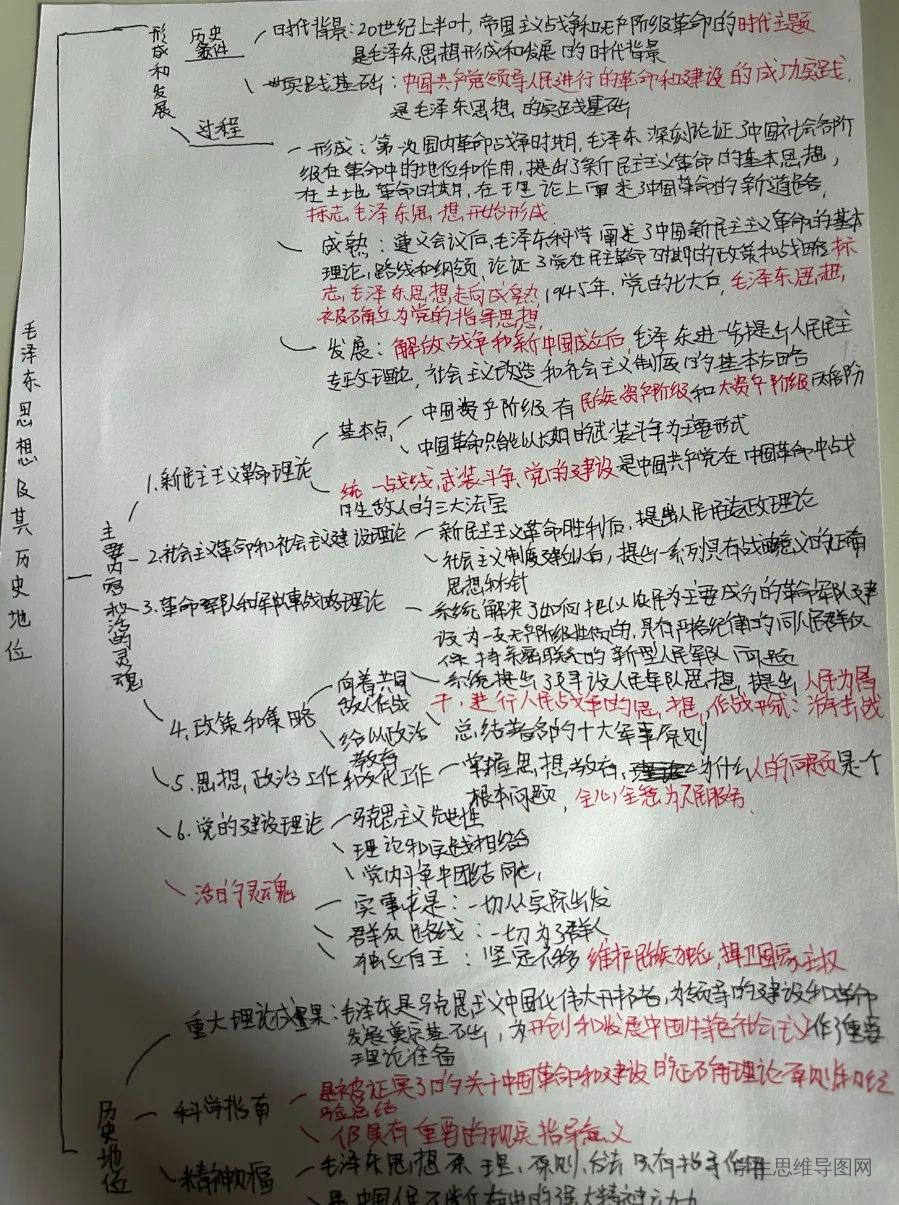 毛泽东思想及其历史地位
形成和发展
历史条件
时代背景：20世纪上半叶，帝国主义战争和无产阶级革命的时代主题
是毛泽东思想形成和发展的时代背景
实践基础：中国共产党领导人民进行的革命和建设的成功实践，
是毛泽东思想的实践基础
过程
形成：第一次国内革命战争时期，毛泽东深刻论证了中国社会各阶
级在革命中的地位和作用，提出了新民主主义革命的基本思想，
在土地革命时期，在理论上阐述了中国革命的新道路，
标志毛泽东思想开始形成
成熟：遵义会议后，毛泽东科学阐述了中国新民主主义革命的基本
理论，路线和纲领，论证了党在民主革命时期的政策和战略标
志毛泽东思想走向成熟，1945年，党的七大后，毛泽东思想，
被确立为党的指导思想
发展：解放战争和新中国成立后毛泽东进一步提出人民民主
专政理论，社会主义改造和社会主义制度的基本方略
主要内容和活的灵魂
1.新民主主义革命理论
基本点
中国资产阶级有民族资产阶级和大资产阶级两部分
中国革命只能以长期的武装斗争为主要形式
统一战线，武装斗争，党的建设是中国共产党在中国革命中战
胜敌人的三大法宝
2.社会主义革命和社会主义建设理论
新民主主义革命胜利后，提出人民民主专政理论
社会主义制度建立以后，提出一系列具有战略意义的正确
思想和方针
3.革命军队和军队事战略理论
系统解决了如何把以农民为主要成分的革命军队建
设为一支无产阶级性质的，具有严格纪律的同人民群众
保持亲密联系的新型人民军队问题
4.政策和策略
向着共同
敌人作战
系统提出了建设人民军队思想，提出人民为骨
干，进行人民战争的思想，作战形式：游击战
给以政治
教育
总结著名的十大军事原则
5.思想，政治工作和文化工作
掌握思想教育，为什么人的问题是个
根本问题，全心全意为人民服务，
6.党的建设理论
马克思主义先进性
理论和实践相结合
党内斗争中团结同志，
活的灵魂
实事求是：一切从实际出发
群众路线：一切为了群人
独立自主：坚定不移维护民族独立，捍卫国家主权
历史地位
重大理论成果：毛泽东是马克思主义中国化伟大开拓者，为领导的建设和革命
发展奠定基础，为开创和发展中国特色社会主义作了重要
理论准备
科学指南
是被证实了的关于中国革命和建设的正确理论原则和经
验总结
仍具有重要的现实指导意义
精神财富
毛泽东思想原理，原则，方法具有指导作用
是中国人民
的强大精神动力
生思维导图网